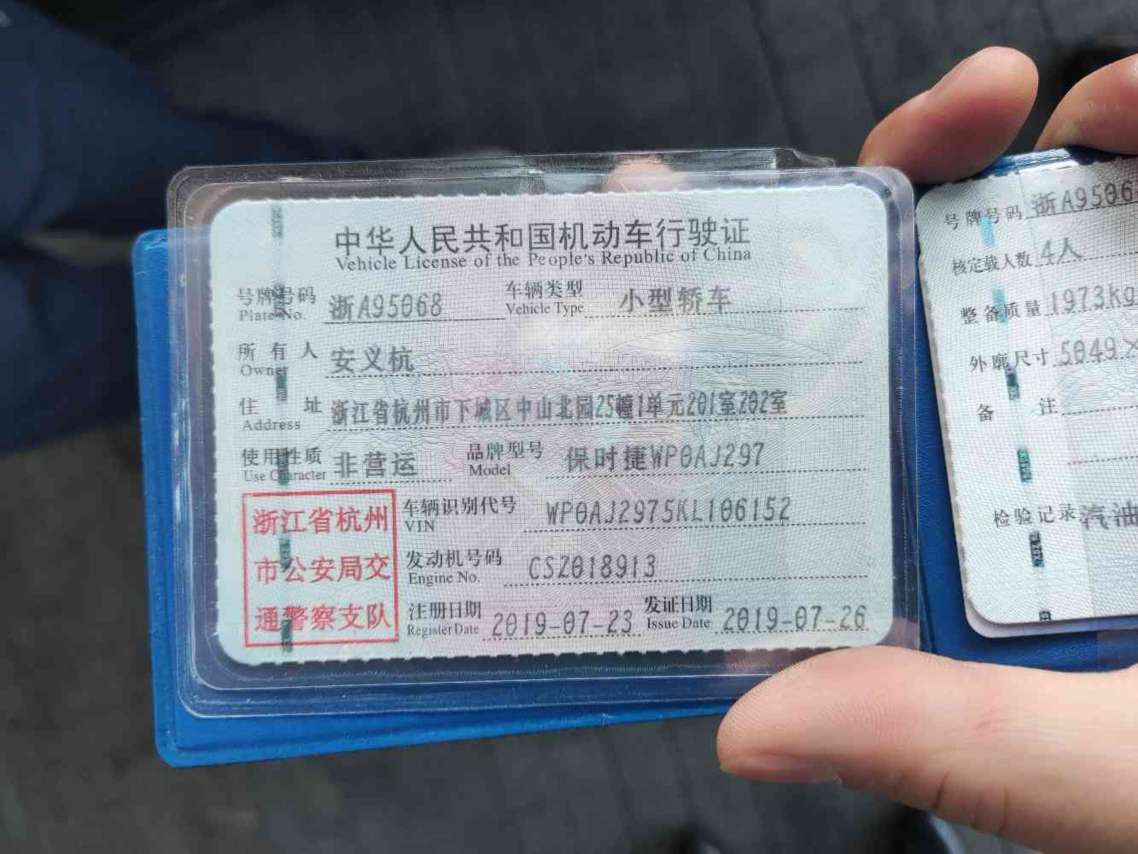 中华人民共和国机动车行驶证
Vehicle License of the People's Republic of China
号牌号码 浙A95068 车辆类型 小型轿车
Plate No. Vehicle Type
所有人 安义杭
Owner
住址 浙江省杭州市下城区中山北园25幢1单元201室202室
Address
使用性质 非营运 品牌型号 保时捷WP0AJ297
Use Character Model
浙江省杭州
市公安局交
通警察支队
车辆识别代号 WP0AJ2975KL106152
VIN
发动机号码 CS2018913
Engine No.
注册日期 2019-07-23 发证日期 2019-07-26
Register Date Issue Date
号牌号码 浙A9506
核定载人数 4人
整备质量 1973kg
外廓尺寸 5049×
备注
检验记录 汽油